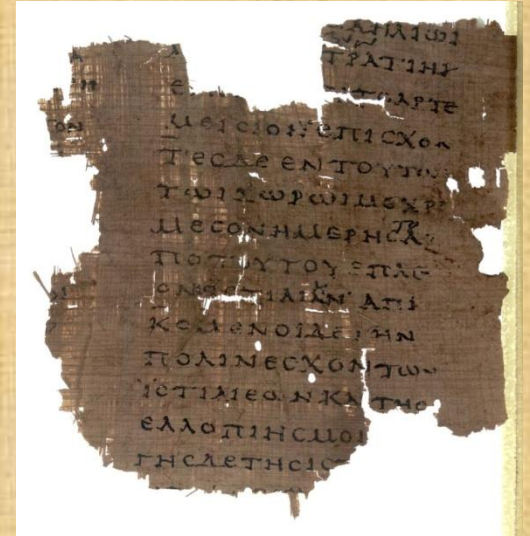 ΑΗΛΙΩΙ
ΤΡΑΤΙΗ
ΤΟΑΡΤΕ
ΜΕΙϹΙΟΝ ΕΠΙϹΧΟΝ
ΤΕϹΔΕΕΝΤΟΥΤΩ
ΤΩΙΧΩΡΩΙΜΕΧΡΙ
ΜΕϹΟΝΗΜΕΡΗϹΑ
ΠΟΤΟΥΤΟΥΕΠΛΕ
ΟΝ ϹΤΙΑΙΑΝ ΑΠΙ
ΚΟΜΕΝΟΙΔΕΤΗΝ
ΠΟΛΙΝΕϹΧΟΝΤΩΝ
ΙϹΤΙΑΙΕΩΝΚΑΙΤΗϹ
ΕΛΛΟΠΙΗϹΜΟΙ
ΓΗϹΔΕΤΗϹΙϹ